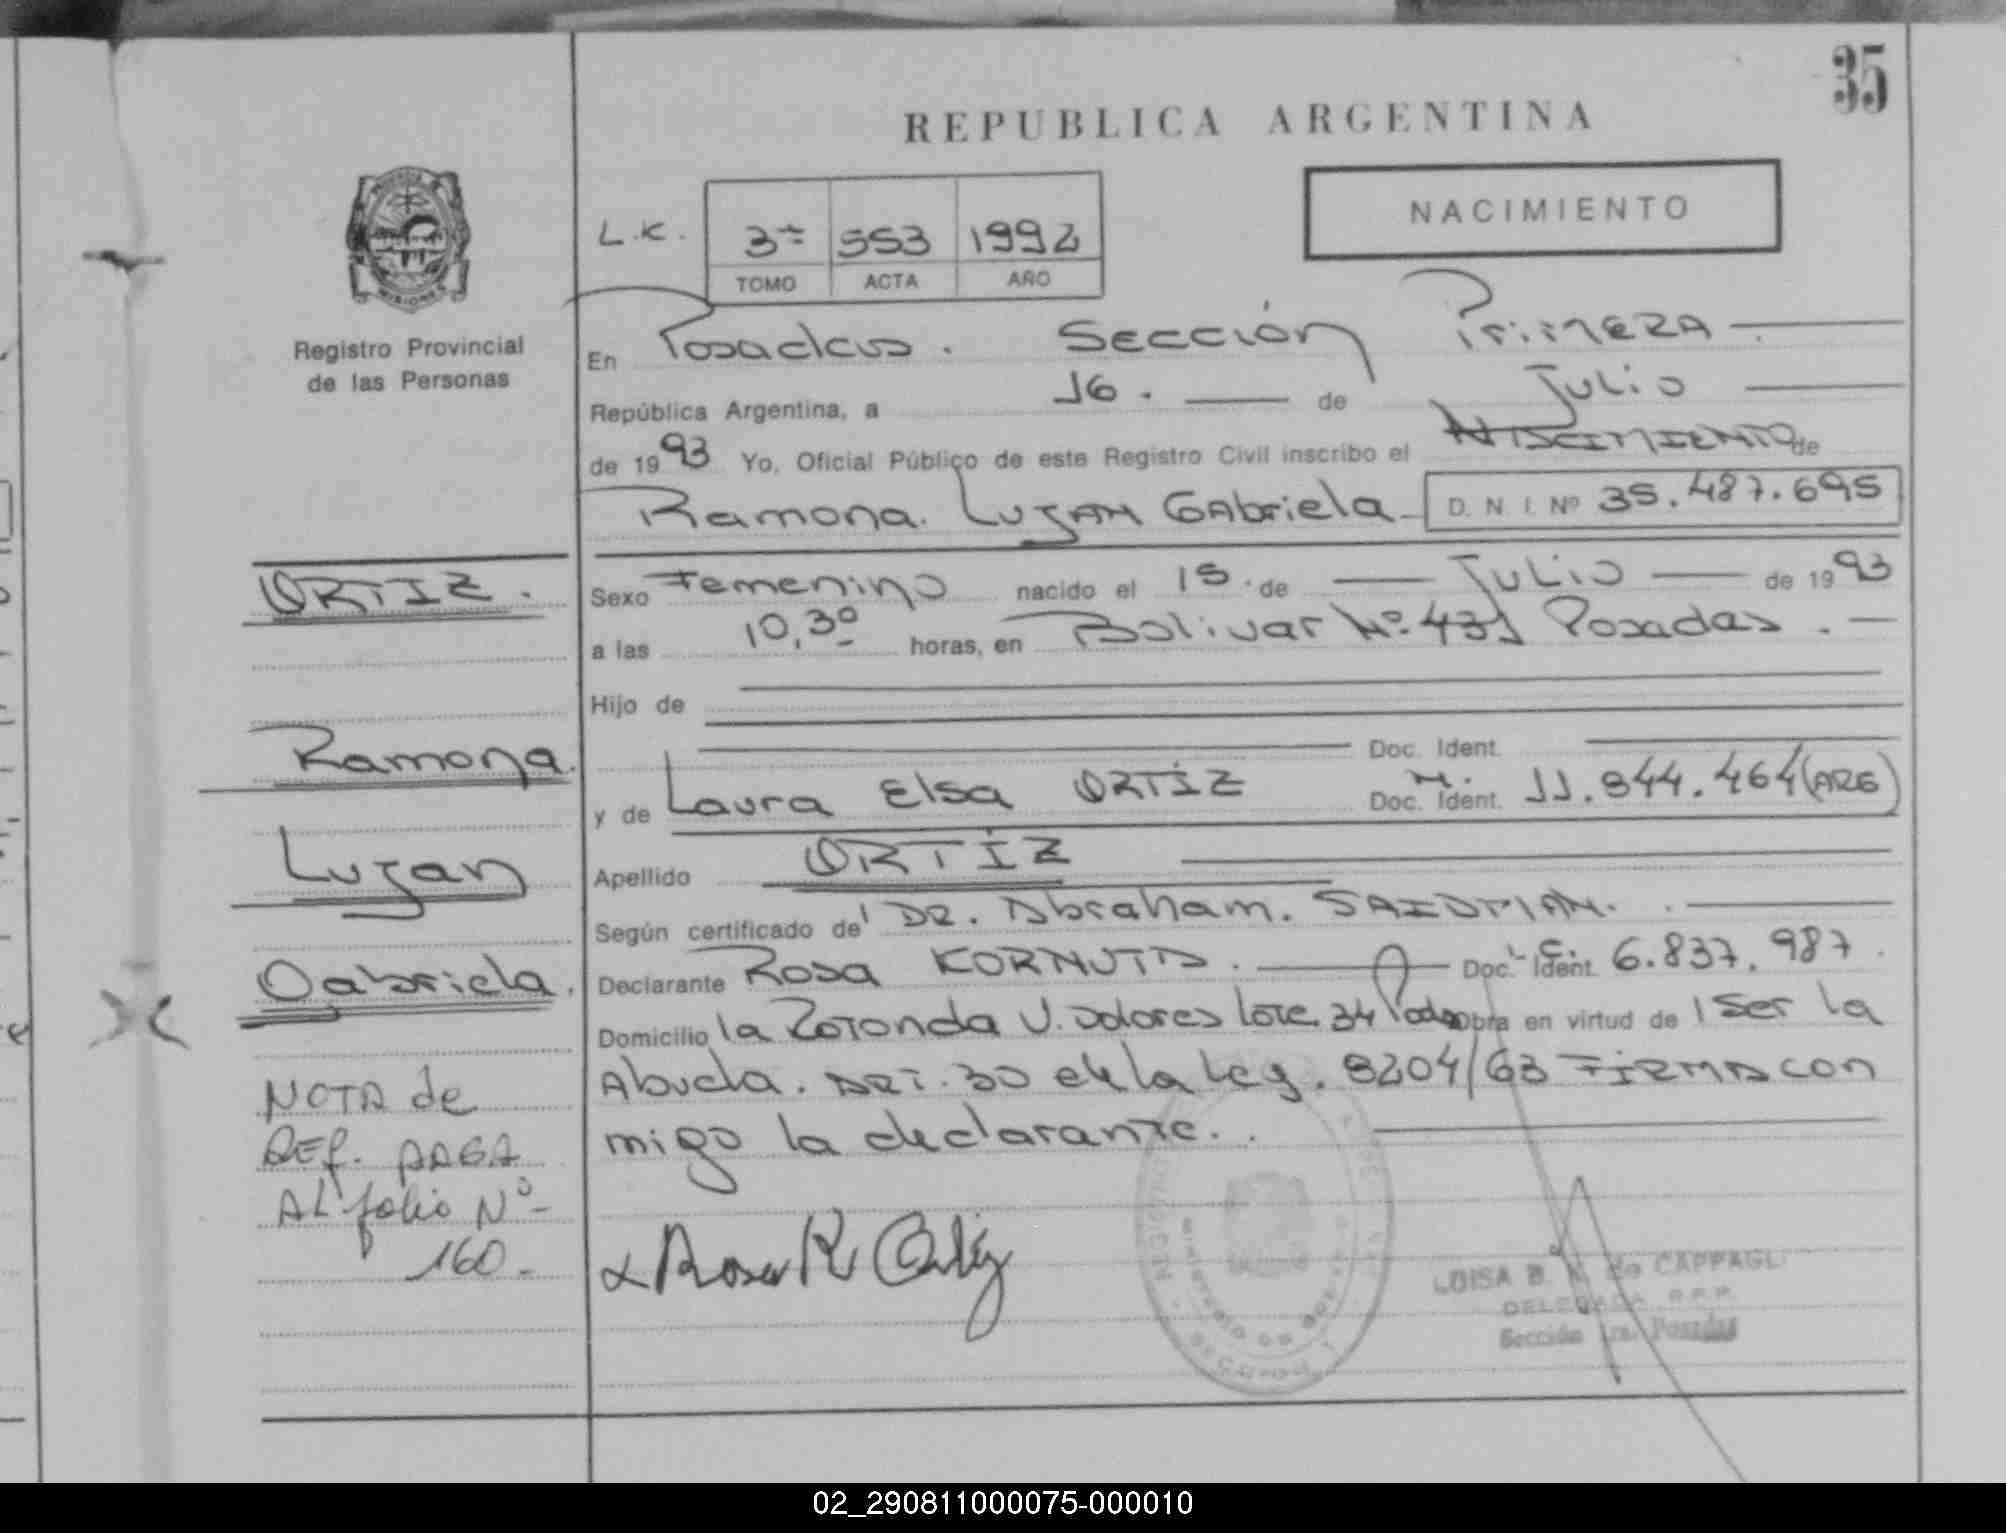 35
REPUBLICA ARGENTINA
NACIMIENTO
L.K. 3º 553 1992
TOMO ACTA AÑO
MISIONES
Registro Provincial
de las Personas
En Posadas. Sección Primera.
República Argentina, a 16. de Julio
de 1993 Yo, Oficial Público de este Registro Civil inscribo el NACIMIENTO de
Ramona. LUJAN GAbriela D. N. I. Nº 35.487.695
ORTIZ.
Sexo Femenino nacido el 15. de Julio de 1993
a las 10,30 horas, en Bolivar Nº 431 Posadas.
Hijo de
Doc. Ident.
Ramona.
y de Laura Elsa ORTÍZ Doc. Ident. 11.844.464 (ARG)
Lujan
Apellido ORTÍZ
Según certificado de DR. Abraham.
Gabriela.
Declarante Rosa KORNUTA. Doc. Ident. C.I. 6.837.987.
Domicilio la Rotonda V. Dolores Lote. 34 Pdas Obra en virtud de Ser la
Abuela. ART. 30 de la Ley. 8204/63 FIRMA con
migo la declarante.
NOTA de
REF. PASA
AL folio Nº
160.-
Rosa K
LUISA B. de CAPPAGLI
DELEGADA R.P.P.
Sección 1ra. Posadas
02_290811000075-000010